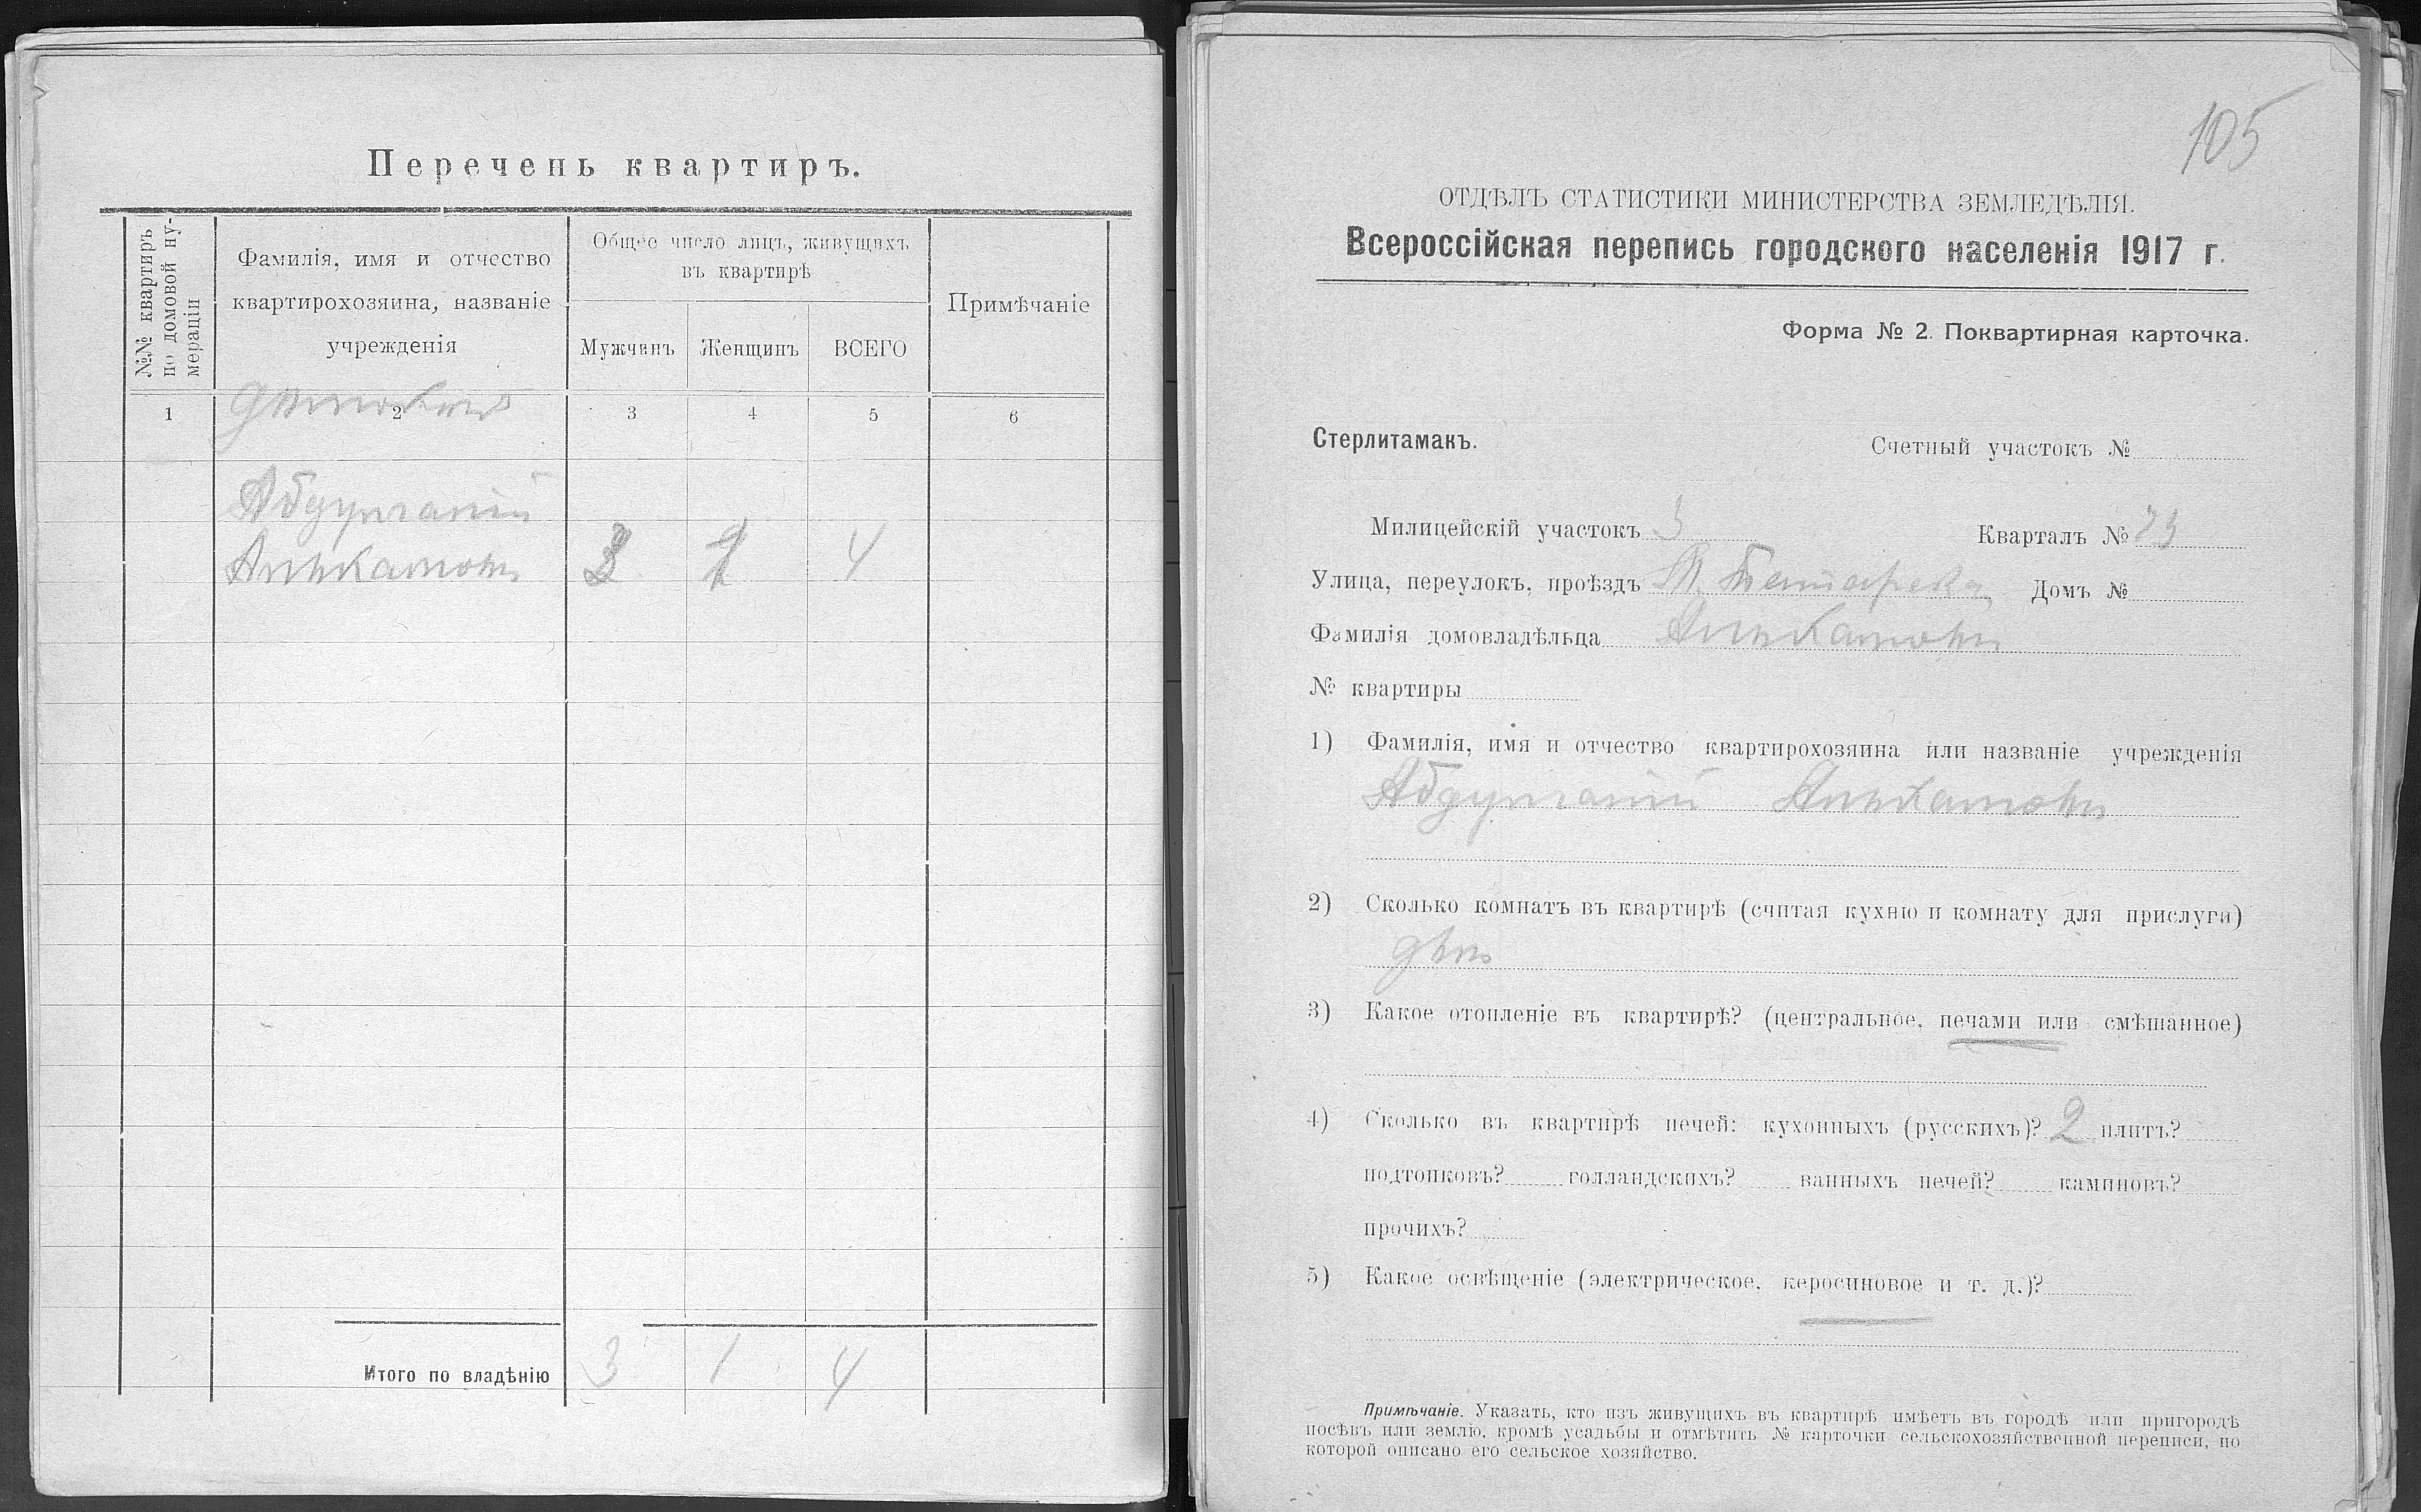 Перечень квартиръ.
№№ квартиръ
по домовой ну-
мераціи
Фамилія, имя и отчество
квартирохозяина, названіе
учрежденія
Общее число лицъ, живущихъ
въ квартирѣ
Мужчинъ Женщинъ ВСЕГО
Примѣчаніе
1 2 3 4 5 6
4
Итого по владѣнію 3 1 4
105
ОТДѢЛЪ СТАТИСТИКИ МИНИСТЕРСТВА ЗЕМЛЕДѢЛІЯ.
Всероссійская перепись городского населенія 1917 г.
Форма № 2. Поквартирная карточка.
Стерлитамакъ. Счетный участокъ №
Милицейскій участокъ 3 Кварталъ № 73
Улица, переулокъ, проѣздъ Домъ №
Фамилія домовладѣльца
№ квартиры
1) Фамилія, имя и отчество квартирохозяина или названіе учрежденія
2) Сколько комнатъ въ квартирѣ (считая кухню и комнату для прислуги)
двѣ
3) Какое отопленіе въ квартирѣ? (центральное, печами или смѣшанное)
4) Сколько въ квартирѣ печей: кухонныхъ (русскихъ)? 2 плитъ?
подтопковъ? голландскихъ? ванныхъ печей? каминовъ?
прочихъ?
5) Какое освѣщеніе (электрическое, керосиновое и т. д.)?
Примѣчаніе. Указать, кто изъ живущихъ въ квартирѣ имѣетъ въ городѣ или пригородѣ
посѣвъ или землю, кромѣ усадьбы и отмѣтить № карточки сельскохозяйственной переписи, по
которой описано его сельское хозяйство.